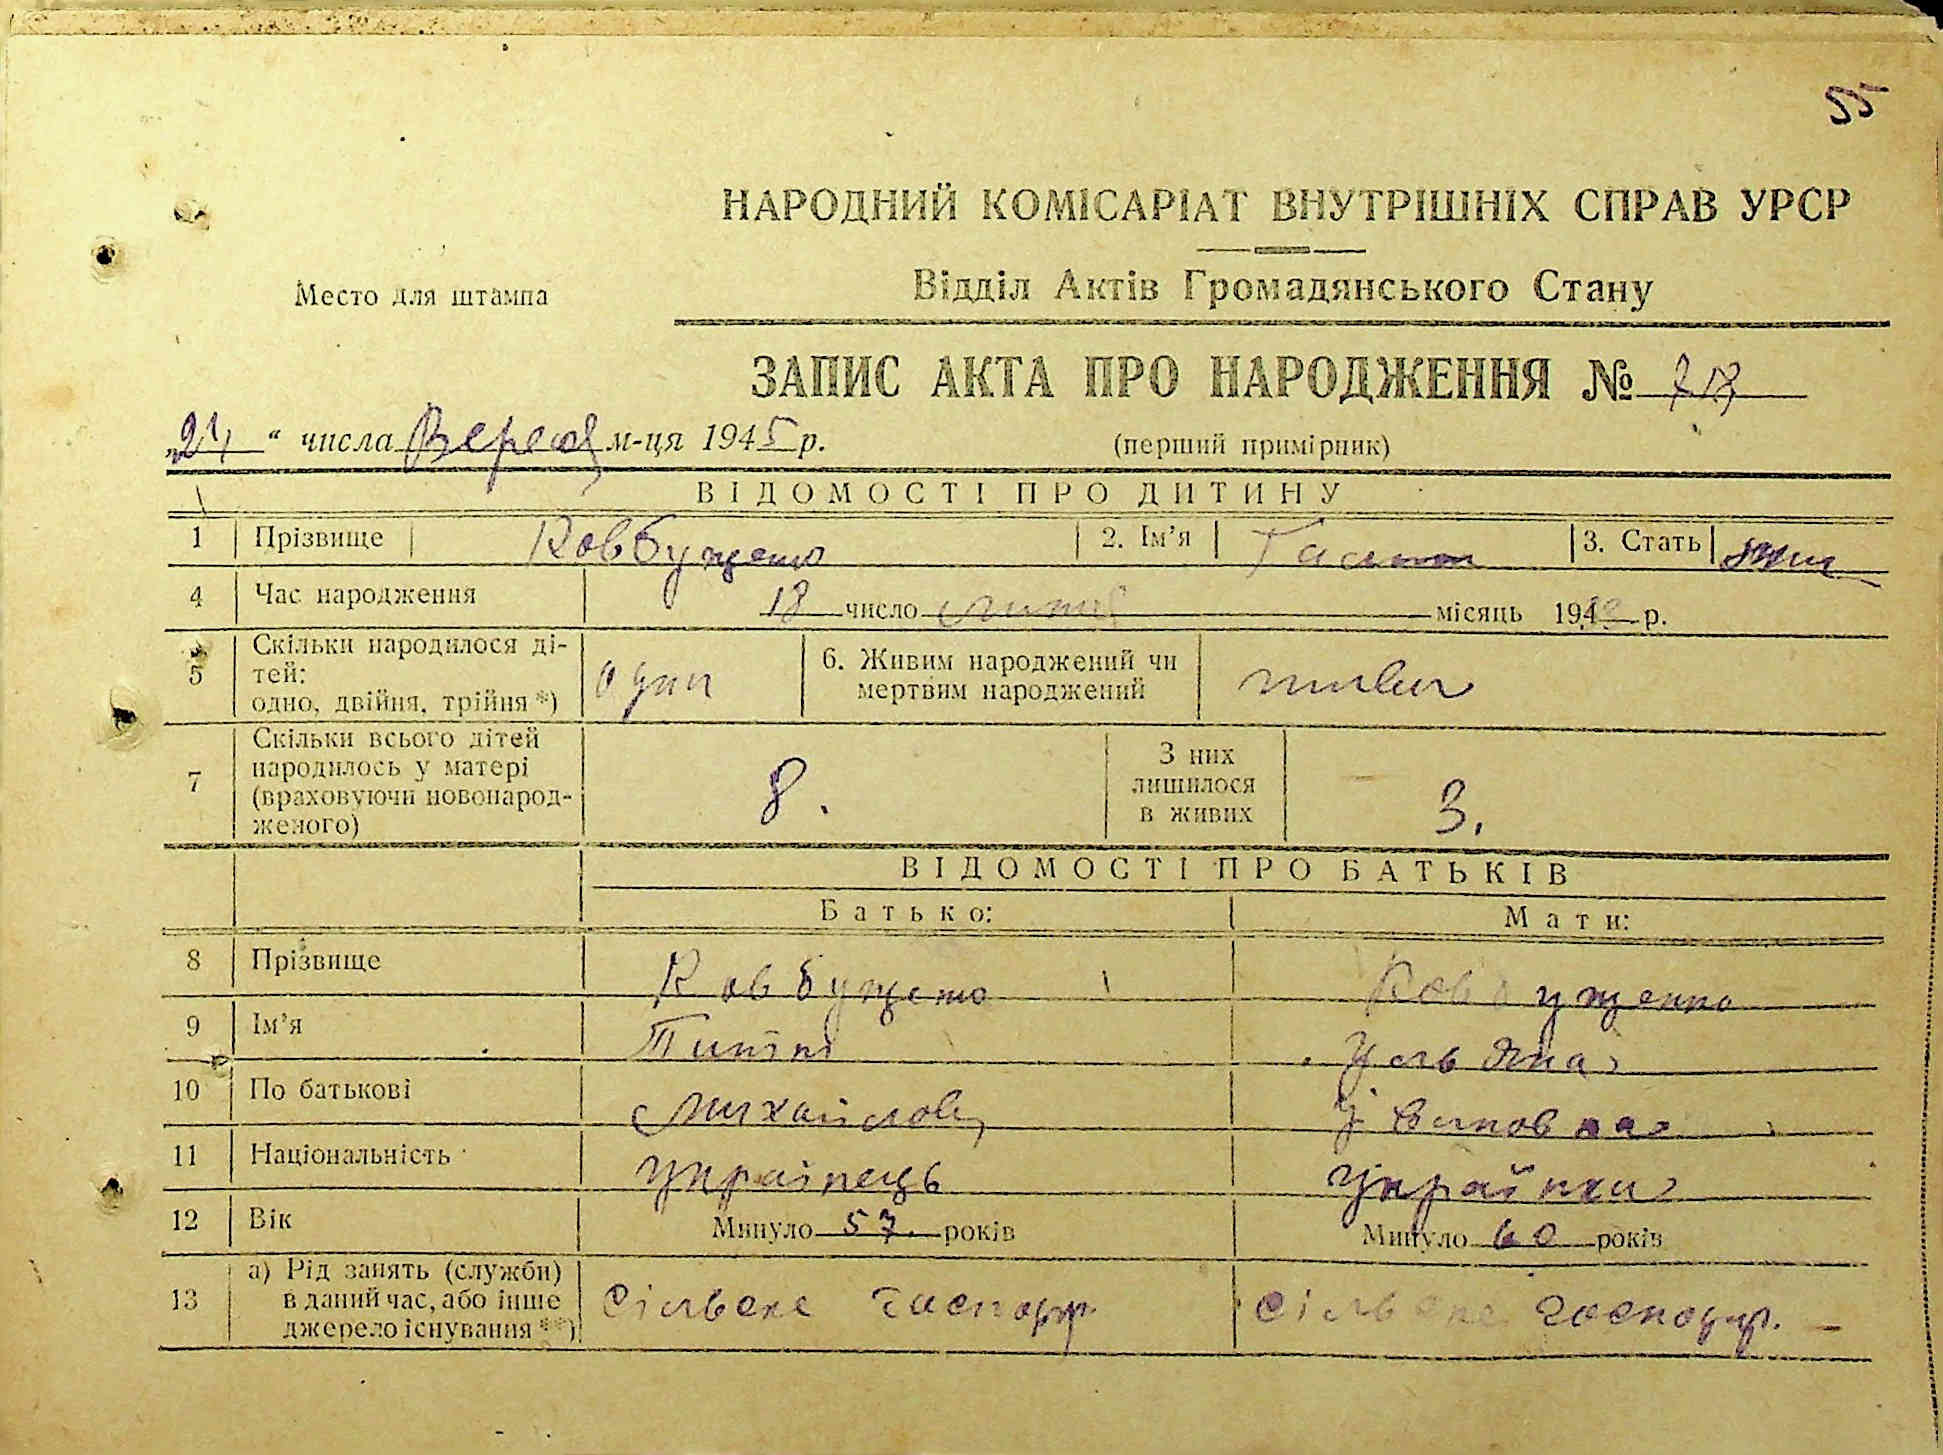 55
НАРОДНИЙ КОМІСАРІАТ ВНУТРІШНІХ СПРАВ УРСР
Место для штампа
Відділ Актів Громадянського Стану
ЗАПИС АКТА ПРО НАРОДЖЕННЯ №
„21“ числа Вересня м-ця 1945 р.
(перший примірник)
ВІДОМОСТІ ПРО ДИТИНУ
1 Прізвище Ковбущенко 2. Ім’я 3. Стать
4 Час народження 18 число місяць 194 р.
5 Скільки народилося ді-
тей:
одно, двійня, трійня *) один 6. Живим народжений чи
мертвим народжений живим
7 Скільки всього дітей
народилось у матері
(враховуючи новонарод-
женого) 8. З них
лишилося
в живих 3.
ВІДОМОСТІ ПРО БАТЬКІВ
Батько: Мати:
8 Прізвище Ковбущенко Ковбущенко
9 Ім’я Ульяна
10 По батькові Михайлович
11 Національність українець українка
12 Вік Минуло 57 років Минуло 60 років
13 а) Рід занять (служби)
в даний час, або інше
джерело існування **) Сільске господар. Сільске господар.